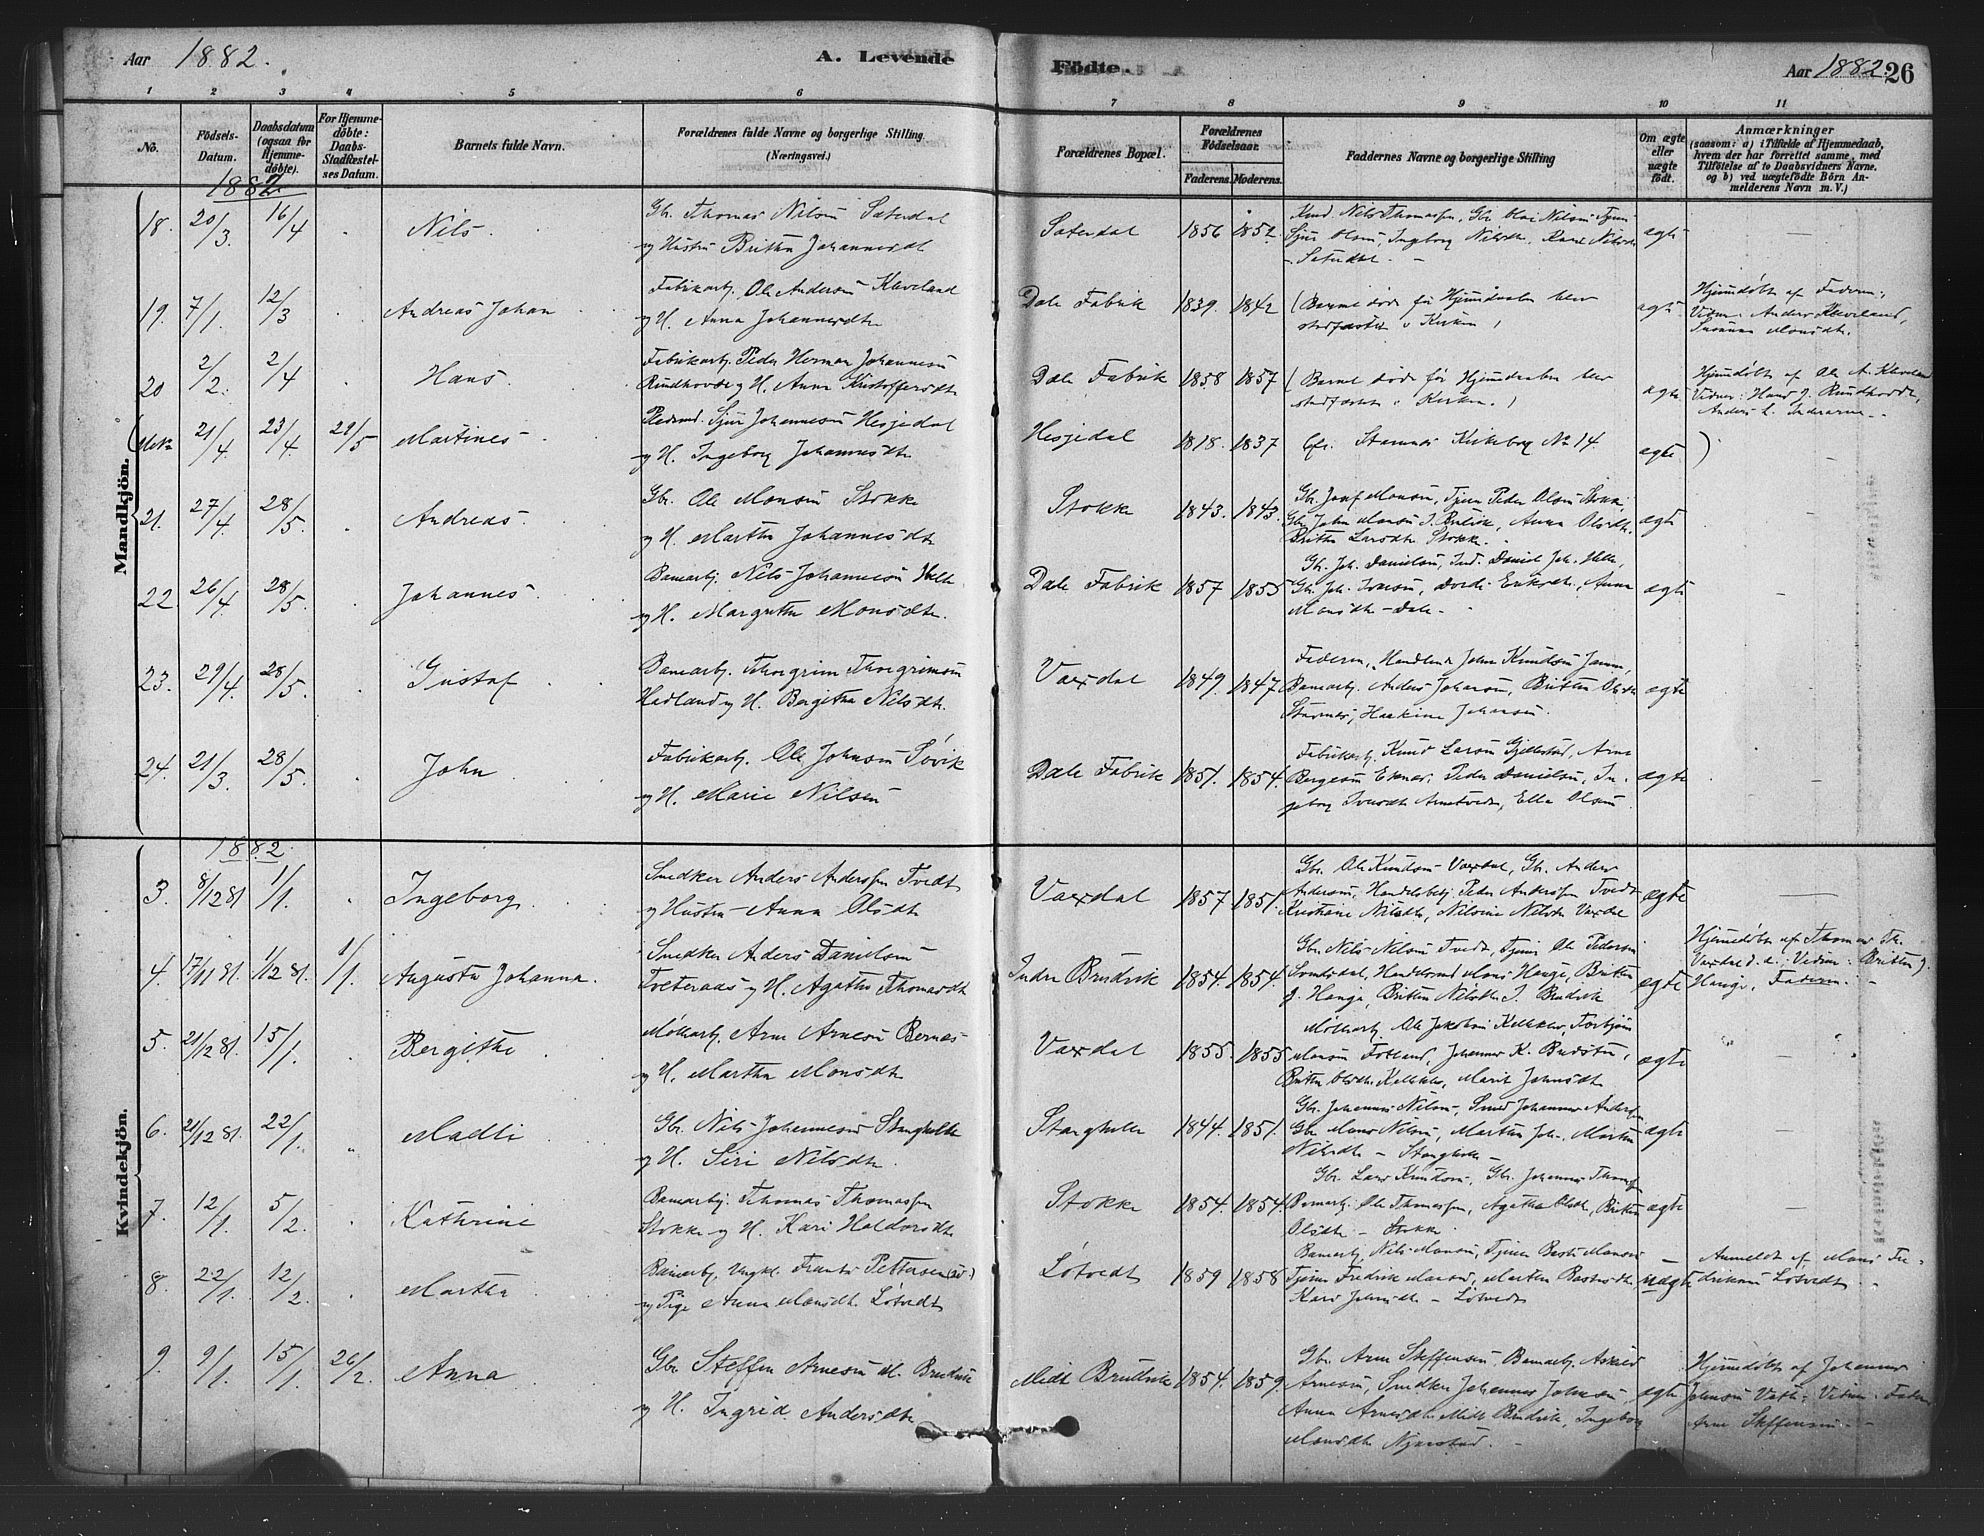 Aar 1882. A. Levende Födte. Aar 1882. 26
1 2 3 4 5 6 7 8 9 10 11
No. Födsels-Datum. Daabsdatum (ogsaa for Hjemmedöbte). For Hjemmedöbte: Daabs-Stadfæstelses Datum. Barnets fulde Navn. Forældrenes fulde Navne og borgerlige Stilling. (Næringsvei.) Forældrenes Bopæl. Forældrenes Födselsaar. Faderens. Moderens. Faddernes Navne og borgerlige Stilling Om ægte eller uægte födt. Anmærkninger (saasom: a) i Tilfælde af Hjemmedaab, hvem der har forrettet samme, med Tilföielse af to Daabsvidners Navne. og b) ved uægtefödte Börn Anmelderens Navn m. V.)
Mandkjön.
1882
18. 20/3. 16/4 Nils. Gbr. Thomas Nilsen Saterdal
og Hustru Britha Johannesdt
Saterdal 1856 1852. ægte
19. 7/1. 12/3 Andreas Johan Fabrikarb. Ole Andersen Kleveland
og H. Anna Johannesdtr
Dale Fabrik 1839. 1842 (Barnet døde før Hjemmedaaben blev
stadfæstet i Kirken) ægte Hjemmdøbt af Faderen;
Vidner: Anders Kleveland,
20 2/2. 2/4 Hans. Fabrikarb. Peder Herman Johannesen
Rundhovde og H. Anna Kristoffersdtr
Dale Fabrik 1858 1857 (Barnet døde før Hjemmedaaben blev
stadfæstet i Kirken.) ægte Hjemmdøbt af Ole A. Kleveland
Vidner: Hans J. Rundhovde,
21/4 23/4 29/5 Martines Sjur Johannesen Hesjedal
og H. Ingeborg Johannesdtr
Hesjedal 1818. 1837 Cfr. Stamnes Kirkebog No 14. ægte )
21. 27/4. 28/5. Andreas. Gbr. Ole Monsen Stokke
og H. Martha Johannesdtr
Stokke 1843. 1843. Gbr. Josef Monsen, Tjener Peder Olsen Stokke
Britha Larsdtr Stokke. ægte
22 26/4. 28/5. Johannes. Banearb. Nils Johannesen Helle
og H. Margretha Monsdtr.
Dale Fabrik 1857 1855 Gbr. Joh. Danielsen, Ind. Daniel Joh. Helle,
Gbr. Joh. Ivarsen, Dorde Eriksdtr, Anna
Monsdtr – Dale. ægte
23. 29/4. 28/5. Gustaf Banearb. Thorgrim Thorgrimsen
Hadland og H. Bergitha Nilsdtr.
Vaxdal 1849. 1847 Faderen, Handlende John Knudsen
Banearb. Anders Johansen, Britha
Stamnes, Haakine Johnsen. ægte
24. 21/3. 28/5. John Fabrikarb. Ole Johnsen Søvik
og H. Marie Nilsen
Dale Fabrik 1851. 1854. Fabrikarb. Knud Larsen Gjellestad, Arne
Bergesen Eknes, Peder Danielsen, In-
geborg Iversdtr Arnetvedt, Ella Olsen. ægte
Kvindekjön.
1882
3. 8/12 81 1/1. Ingeborg. Snedker Anders Andersen Tvedt
og Hustru Anna Olsdtr
Vaxdal 1857. 1851. Gbr. Ole Knudsen Vaxdal, Gbr. Anders
Andersen, Handelsbetj. Peder Andersen Tvedt
Kristiane Nilsdtr, Nilsine Nilsdtr Vaxdal ægte
4. 17/11 81 1/12 81. 1/1. Augusta Johanna. Snedker Anders Danielsen
Tveteraas og H. Agatha Thomasdt
Indre Brudvik 1854. 1854. Gbr. Nils Nilsen Tvedt, Tjener Ole Pedersen
Mons Hauge, Britha
J. Hauge, Britha Nilsdtr I. Brudvik ægte Hjemmdøbt af Thomas Th.
Vaxdal Vidner: Britha J.
Hauge, Faderen.
5. 21/12 81. 15/1. Bergithe Møllearb. Arne Arnesen Bernes
og H. Martha Monsdtr
Vaxdal 1855. 1855 Møllearb. Ole Jakobsen Torbjørn
Monsen Fotland, Johannes K.
Britha Olsdtr Marit Johnsdtr ægte
6. 21/12 81. 22/1. Madli Gbr. Nils Johannesen Stanghelle
og H. Siri Nilsdtr.
Stanghelle 1844. 1851. Gbr. Johannes Nilsen, Smed Johannes Andersen
Gbr. Mons Nilsen, Martha Joh., Martha
Nilsdtr – Stanghelle – ægte
7. 12/1. 5/2. Kathrine Banearb. Thomas Thomassen
Stokke og H. Kari Haldorsdtr
Stokke 1854. 1854 Gbr. Lars Knudsen, Gbr. Johannes Thomassen
Banearb. Ole Thomassen, Agatha Olsdtr, Britha
Olsdtr – Stokke ægte
8. 22/1. 12/2. Martha Banearb. Ungk. Frants Pettersen
og Pige Anna Monsdtr. Løtvedt
Løtvedt 1859 1858 Banearb. Nils Monsen, Tjener Monsen
Tjener Fredrik Monsen, Martha
Kari Johnsdtr – Løtvedt uægte Anmeldt af Mons Fre-
driksen Løtvedt
9. 9/1. 15/1. 26/2. Anna Gbr. Steffen Arnesen M. Brudvik
og H. Ingrid Andersdtr
Midt Brudvik 1854. 1859. Gbr. Arne Steffensen, Banearb. Askild
Arnesen, Snedker Johannes Johnsen
Anna Arnesdtr Midt Brudvik, Ingeborg
Monsdtr ægte Hjemmdøbt af Johannes
Johnsen Vidner: Faderen
Arne Steffensen